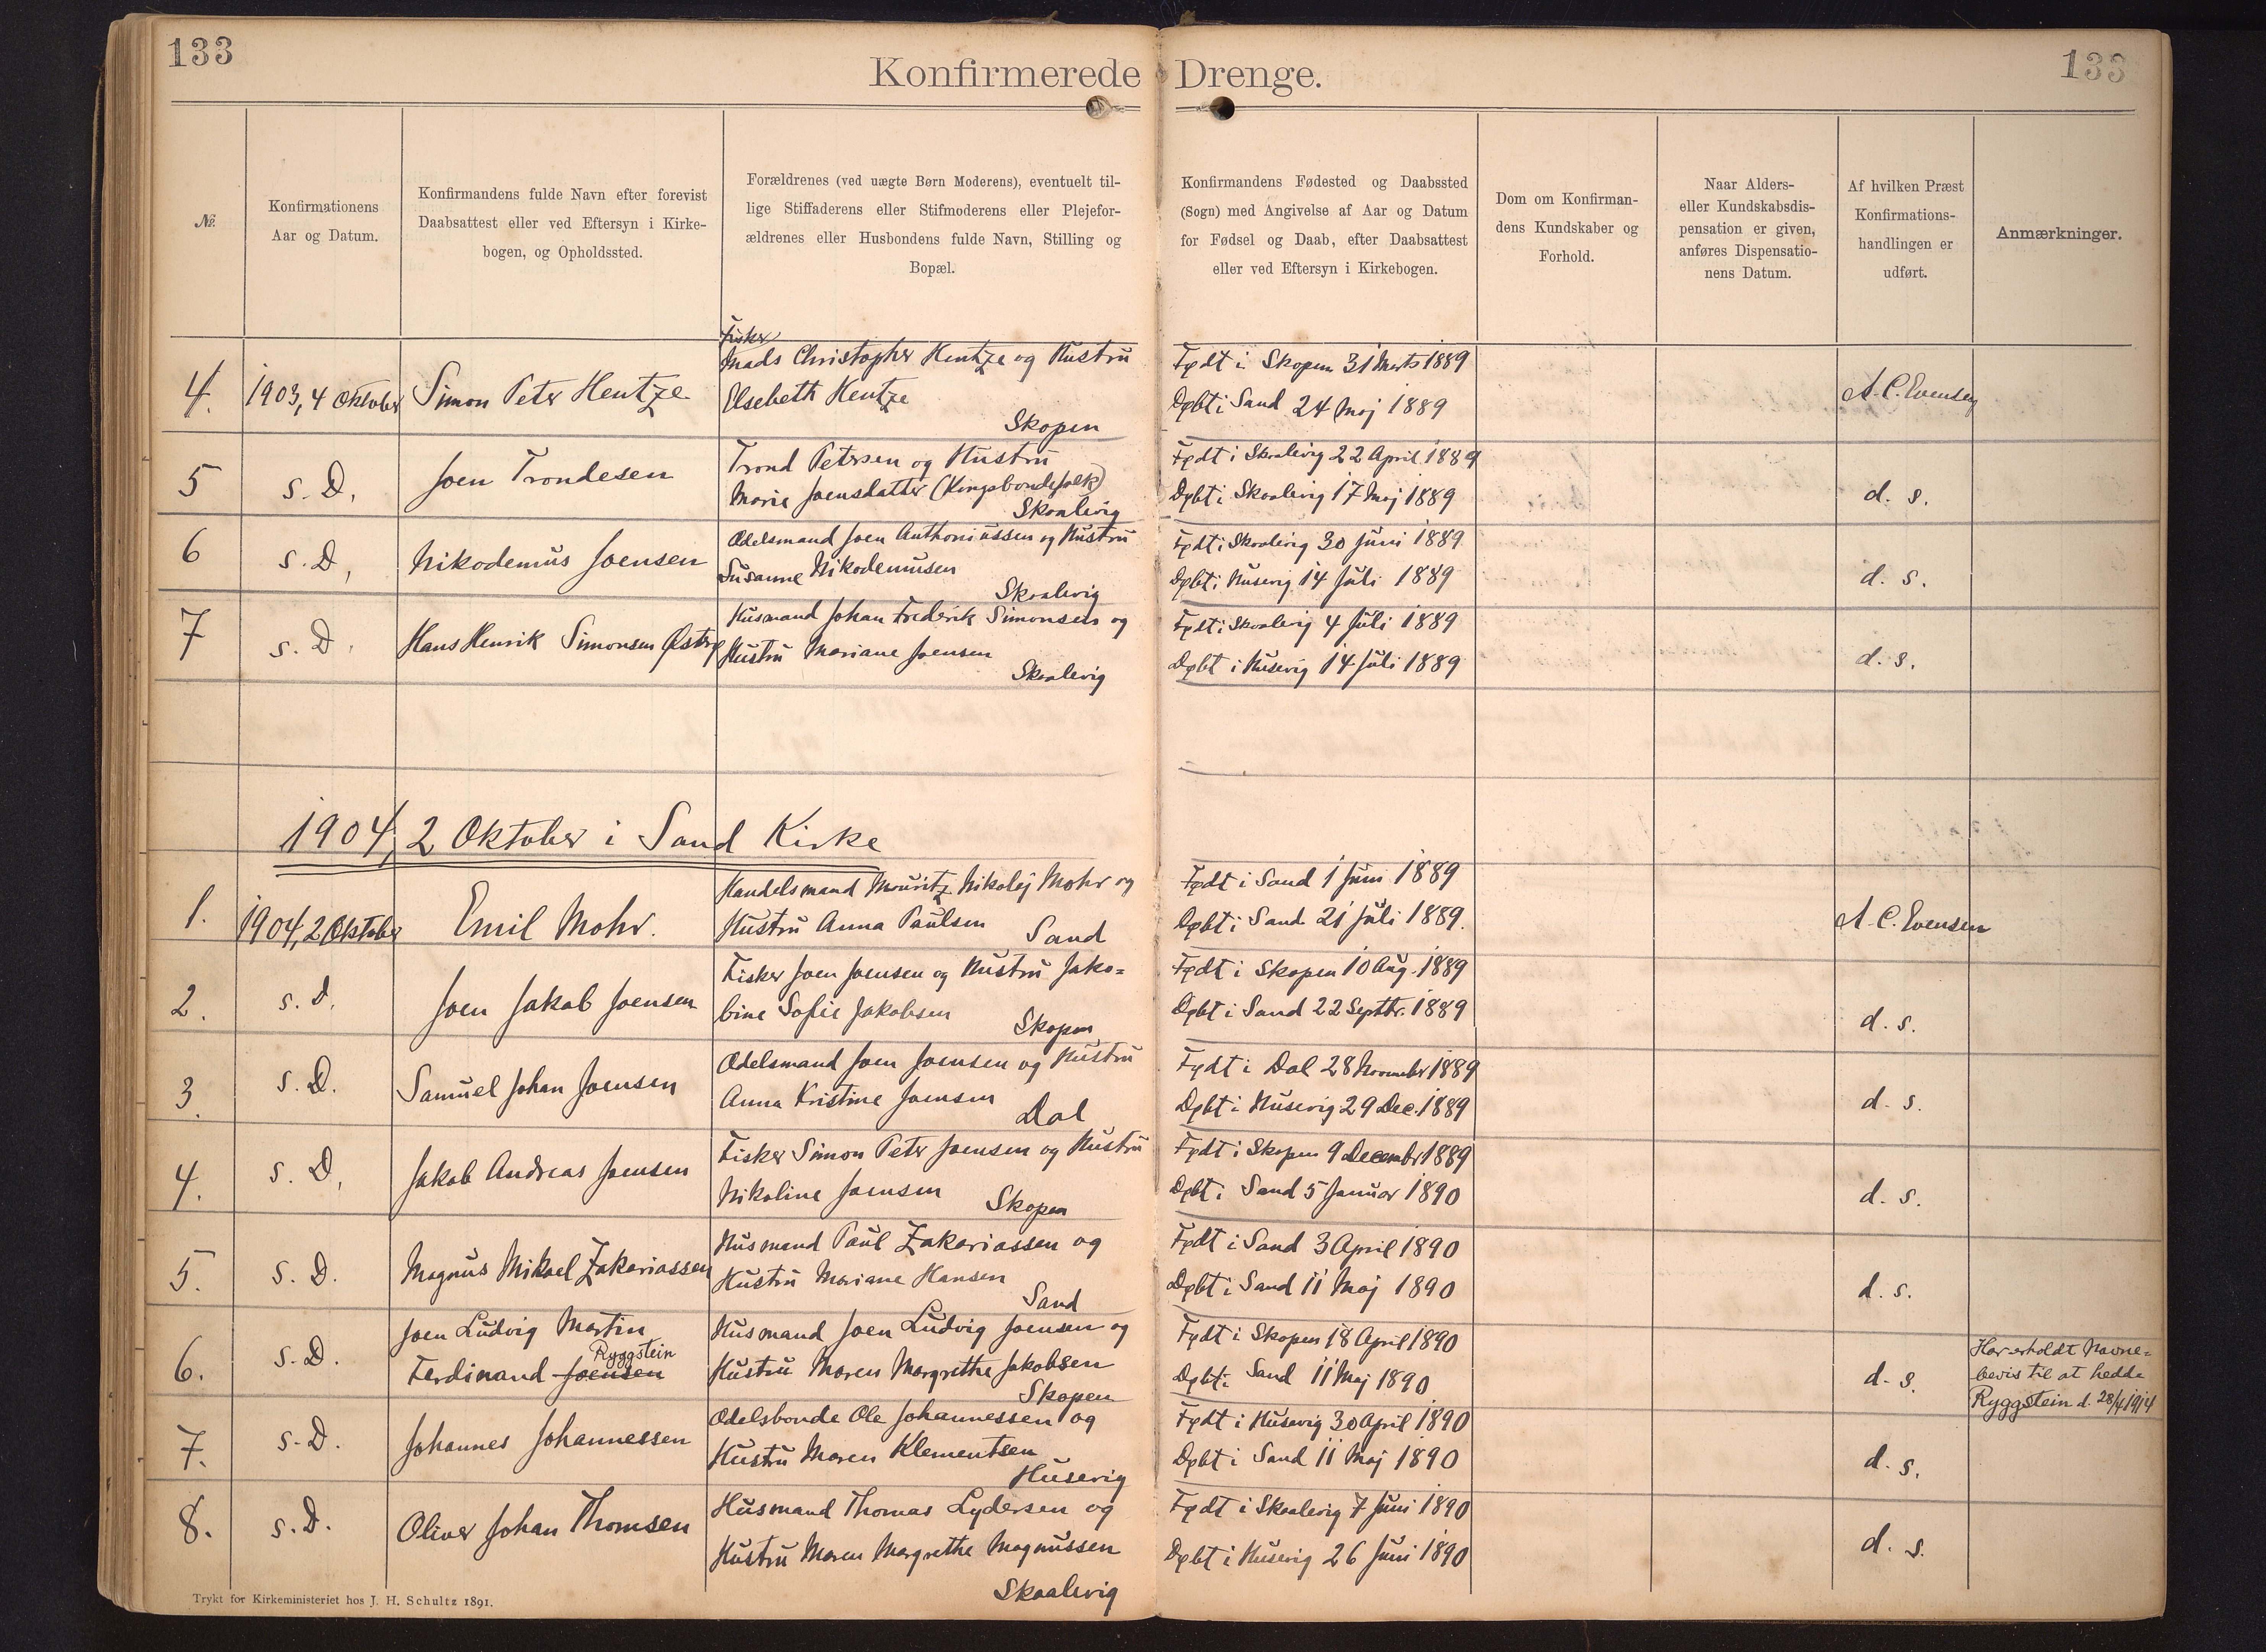 133
133
Konfirmerede Drenge.
№.
Konfirmationens
Aar og Datum.
Konfirmandens fulde Navn efter forevist
Daabsattest eller ved Eftersyn i Kirke-
bogen, og Opholdssted.
Forældrenes (ved uægte Børn Moderens), eventuelt til-
lige Stiffaderens eller Stifmoderens eller Plejefor-
ældrenes eller Husbondens fulde Navn, Stilling og
Bopæl.
Konfirmandens Fødested og Daabssted
(Sogn) med Angivelse af Aar og Datum
for Fødsel og Daab, efter Daabsattest
eller ved Eftersyn i Kirkebogen.
Dom om Konfirman-
dens Kundskaber og
Forhold.
Naar Alders-
eller Kundskabsdis-
pensation er given,
anføres Dispensatio-
nens Datum.
Af hvilken Præst
Konfirmations-
handlingen er
udført.
Anmærkninger.
4.
1903, 4 Oktober
Simon Peter Hentze
Fisker
Mads Christopher Hentze og Hustru
Elsebeth Hentze
Skopen
Født i Skopen 31 Marts 1889
Døbt i Sand 24 Maj 1889
A. C. Evensen
5
s. D.
Joen Trondesen
Trond Petersen og Hustru
Marie Joensdatter (Kongsbondefolk)
Skaalevig
Født i Skaalevig 22 April 1889
Døbt i Skaalevig 17 Maj 1889
d. s.
6
s. D,
Nikodemus Joensen
Odelsmand Joen Anthoniussen og Hustru
Susanne Nikodemusen
Skaalevig
Født i Skaalevig 30 Juni 1889
Døbt i Husevig 14 Juli 1889
d. s.
7
s. D.
Hans Henrik Simonsen Østrø
Husmand Johan Frederik Simonsen og
Hustru Mariane Joensen
Skaalevig
Født i Skaalevig 4 Juli 1889
Døbt i Husevig 14 Juli 1889
d. s.
1904, 2 Oktober i Sand Kirke
1.
1904, 2 Oktober
Emil Mohr.
Handelsmand Mouritz Nikolej Mohr og
Hustru Anna Paulsen
Sand
Født i Sand 1 Juni 1889
Døbt i Sand 21 Juli 1889.
A. C. Evensen
2.
s. d.
Joen Jakob Joensen
Fisker Joen Joensen og Hustru Jako=
bine Sofie Jakobsen
Skopen
Født i Skopen 10 Aug. 1889
Døbt i Sand 22 Septbr. 1889
d. s.
3.
s. D.
Samuel Johan Joensen
Odelsmand Joen Joensen og Hustru
Anna Kristine Joensen
Dal
Født i Dal 28 November 1889
Døbt i Husevig 29 Dec. 1889
d. s.
4.
s. D,
Jakob Andreas Joensen
Fisker Simon Peter Joensen og Hustru
Nikoline Joensen
Skopen
Født i Skopen 9 Decembr 1889
Døbt i Sand 5 Januar 1890
d. s.
5.
s. D.
Magnus Mikael Zakariassen
Husmand Paul Zakariassen og
Hustru Mariane Hansen
Sand
Født i Sand 3 April 1890
Døbt i Sand 11 Maj 1890
d. s.
6.
s. D.
Joen Ludvig Martin
Ryggstein
Ferdinand Joensen
Husmand Joen Ludvig Joensen og
Hustru Maren Margrethe Jakobsen
Skopen
Født i Skopen 18 April 1890
Døbt i Sand 11 Maj 1890
d. s.
Har erholdt Navne=
bevis til at hedde
Ryggstein d. 28/4 1914
7.
s. D.
Johannes Johannessen
Odelsbonde Ole Johannessen og
Hustru Maren Klementsen
Husevig
Født i Husevig 30 April 1890
Døbt i Sand 11 Maj 1890
d. s.
8.
s. D.
Oliver Johan Thomsen
Husmand Thomas Lydersen og
Hustru Maren Margrethe Magnussen
Skaalevig
Født i Skaalevig 7 Juni 1890
Døbt i Husevig 26 Juni 1890
d. s.
Trykt for Kirkeministeriet hos J. H. Schultz 1891.